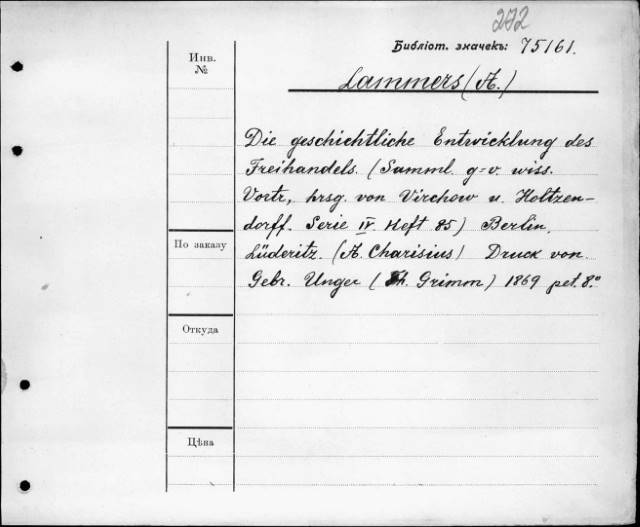 272
Библіот. значекъ: 75161.
Инв.
№
Lammers (A.)
Die geschichtliche Entwicklung des
Freihandels. (Samml. g=v. wiss.
Vortr, hrsg. von Virchow u. Holtzen-
dorff. Serie IV. Heft 85) Berlin,
По заказу
Lüderitz. (A. Charisius) Druck von
Gebr. Unger (Th. Grimm) 1869 pet. 8.°
Откуда
Цѣна